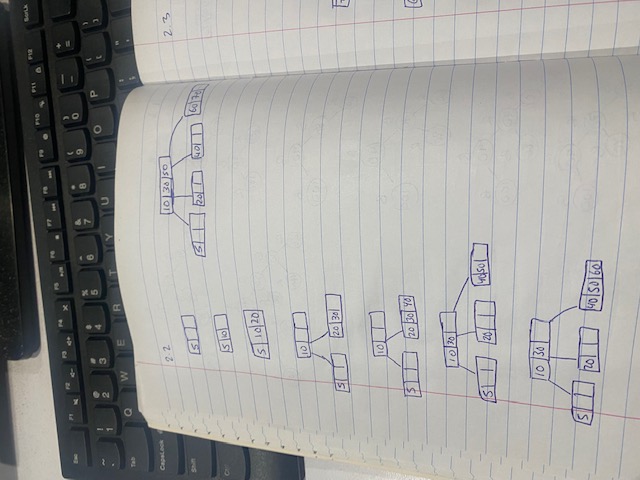 Esc F1 F2 F3 F4 F5 F6 F7 F8 F9 F10 F11 F12 ScrLk
~ ! 1 @ 2 # 3 $ 4 % 5 ^ 6 & 7 * 8 ( 9 ) 0 - + =
Tab Q W E R T Y U I O P { [
CapsLock
Shift
Ctrl
2.2
5
5 10
5 10 20
10
5 20 30
10
5 20 30 40
10 30
5 20 40 50
10 30
5 20 40 50 60
10 30 50
5 20 40 60 70
2.3